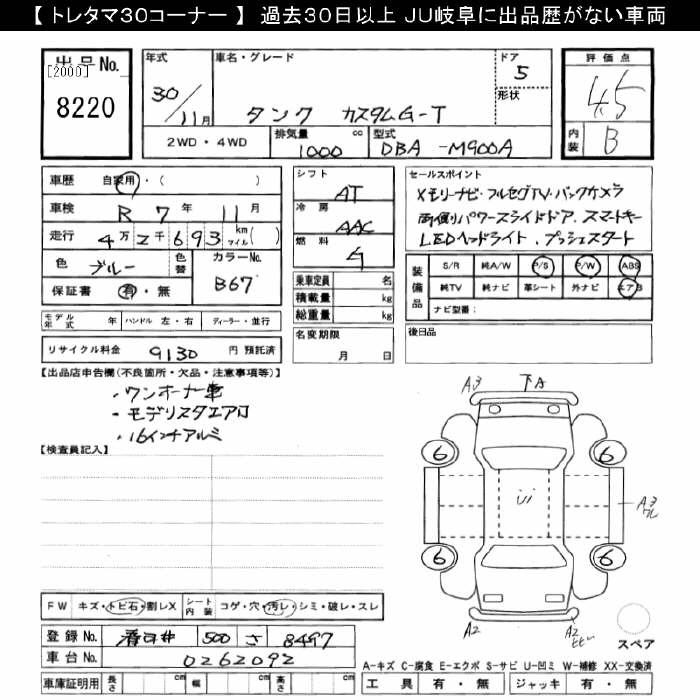 【 トレタマ30コーナー 】 過去30日以上 JU岐阜に出品歴がない車両
出品No.
[2000]
8220
年式
30/11月
車名・グレード
タンク カスタムG-T
ドア
5
形状
2WD・4WD
排気量
1000 cc
型式
DBA -M900A
評価点
4.5
内装
B
車歴 自家用・( )
車検 R 7年 11月
走行 4万2千693 km マイル( )
色 ブルー 色替 カラーNo. B67
保証書 有・無
モデル年式 年 ハンドル 左・右 ディーラー・並行
リサイクル料金 9130 円 預託済
シフト
AT
冷房
AAC
燃料
ガ
乗車定員 名
積載量 kg
総重量 kg
名変期限
月 日
セールスポイント
メモリーナビ・フルセグTV・バックカメラ
両側パワースライドドア、スマートキー
LEDヘッドライト、プッシュスタート
装備品
S/R 純A/W P/S P/W ABS
純TV 純ナビ 革シート 外ナビ エアB
ナビ型番:
後日品
【出品店申告欄(不良箇所・欠品・注意事項等)】
・ワンオーナー車
・モデリスタエアロ
・16インチアルミ
【検査員記入】
A3 下A
6 6
A3
6 6
A2 A2
スペア
FW キズ・トビ石・割レX シート内装 コゲ・穴・汚レ・シミ・破レ・スレ
登録No. 春日井 500 さ 8497
車台No. 0262092
車庫証明用 長さ 幅 高さ
A-キズ C-腐食 E-エクボ S-サビ U-凹ミ W-補修 XX-交換済
工具 有・無 ジャッキ 有・無